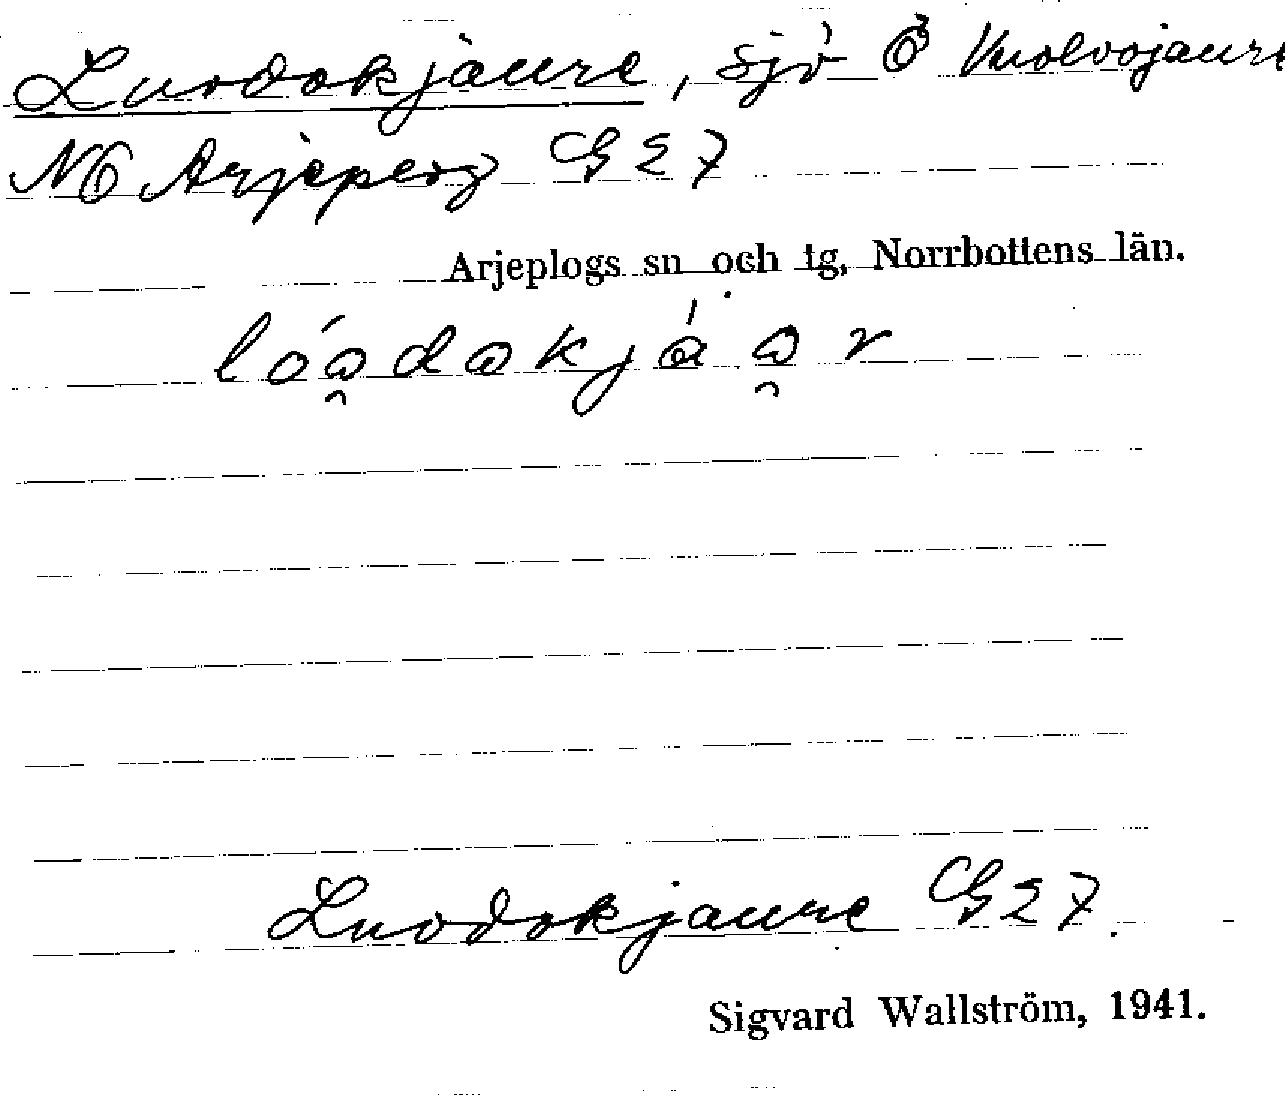 Luodokjaure, sjö Ö Vuolvojaure
NÖ Arjeplog G 27
Arjeplogs sn och tg, Norrbottens län.
Luodokjaure G 27.
Sigvard Wallström, 1941.